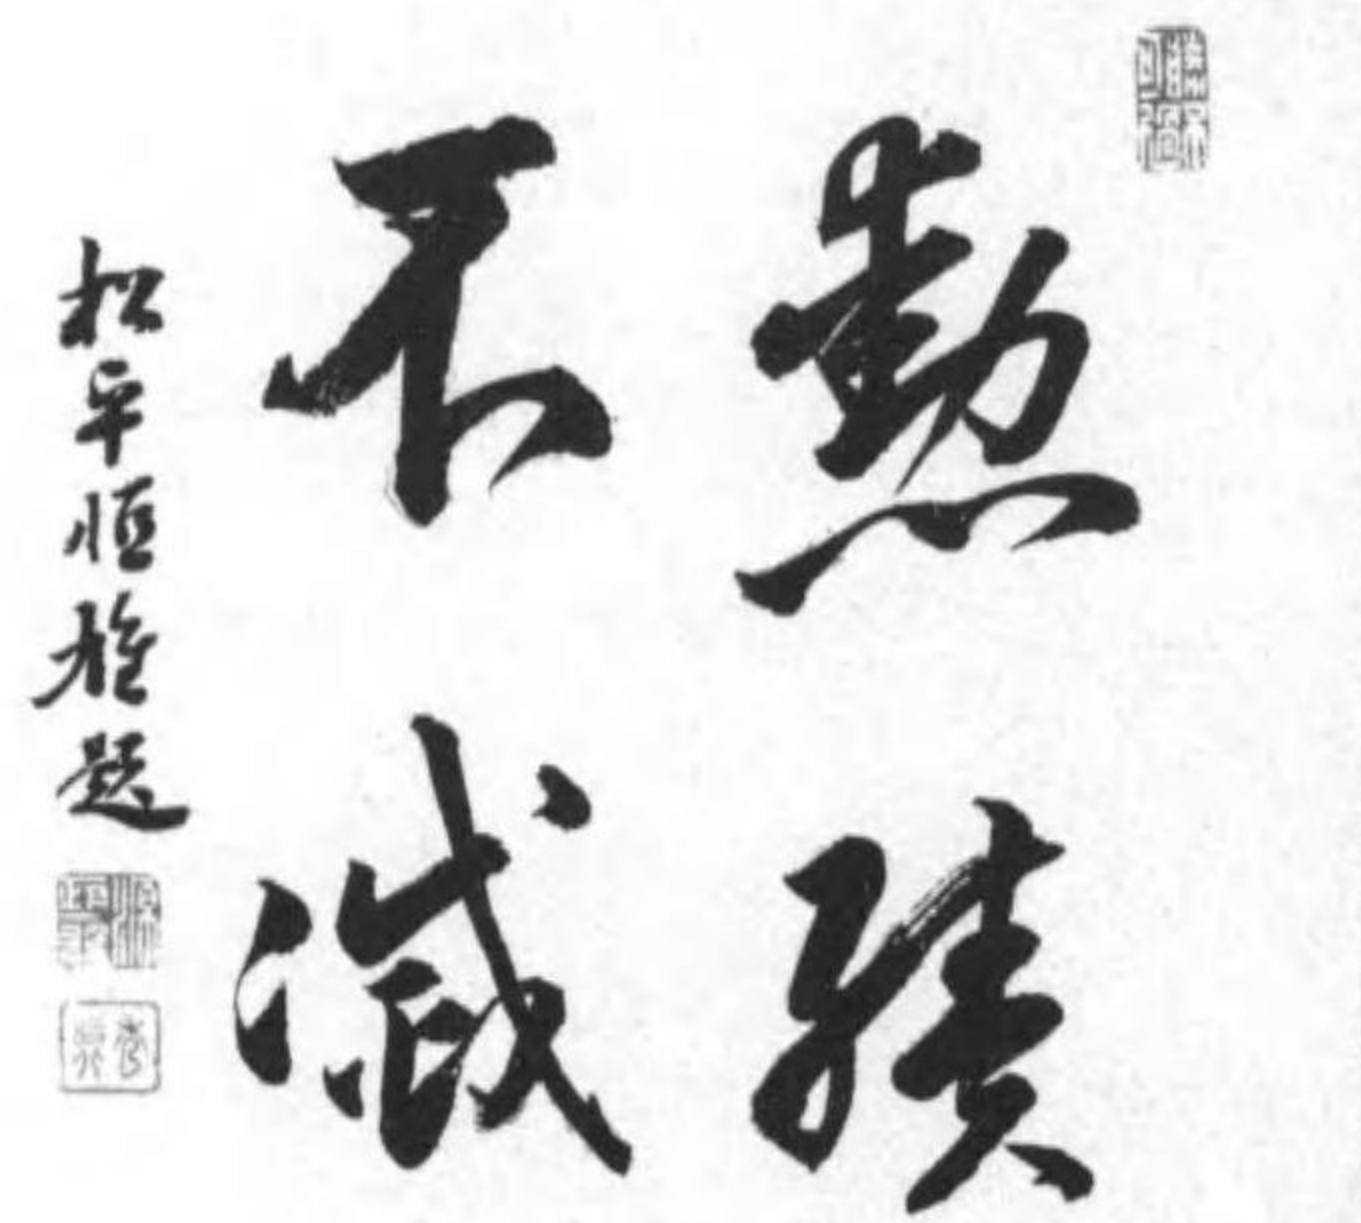 勲績
不滅
松平恒雄題